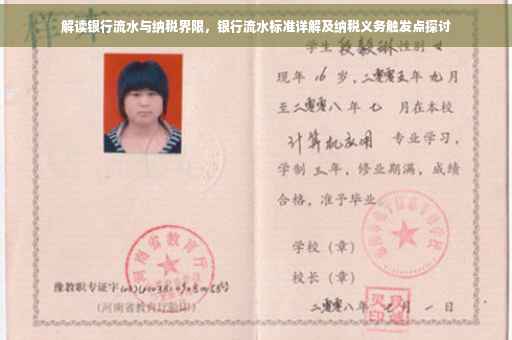 解读银行流水与纳税界限，银行流水标准详解及纳税义务触发点探讨
学生段毅琳性别女
现年16岁，二零零五年九月
至二零零八年七月在本校
计算机应用 专业学习，
学制三年，修业期满，成绩
合格，准予毕业
学校（章）
校长（章）
二零零八年七月一日
河南省教育厅
豫教职专证字
（河南省教育厅验印）